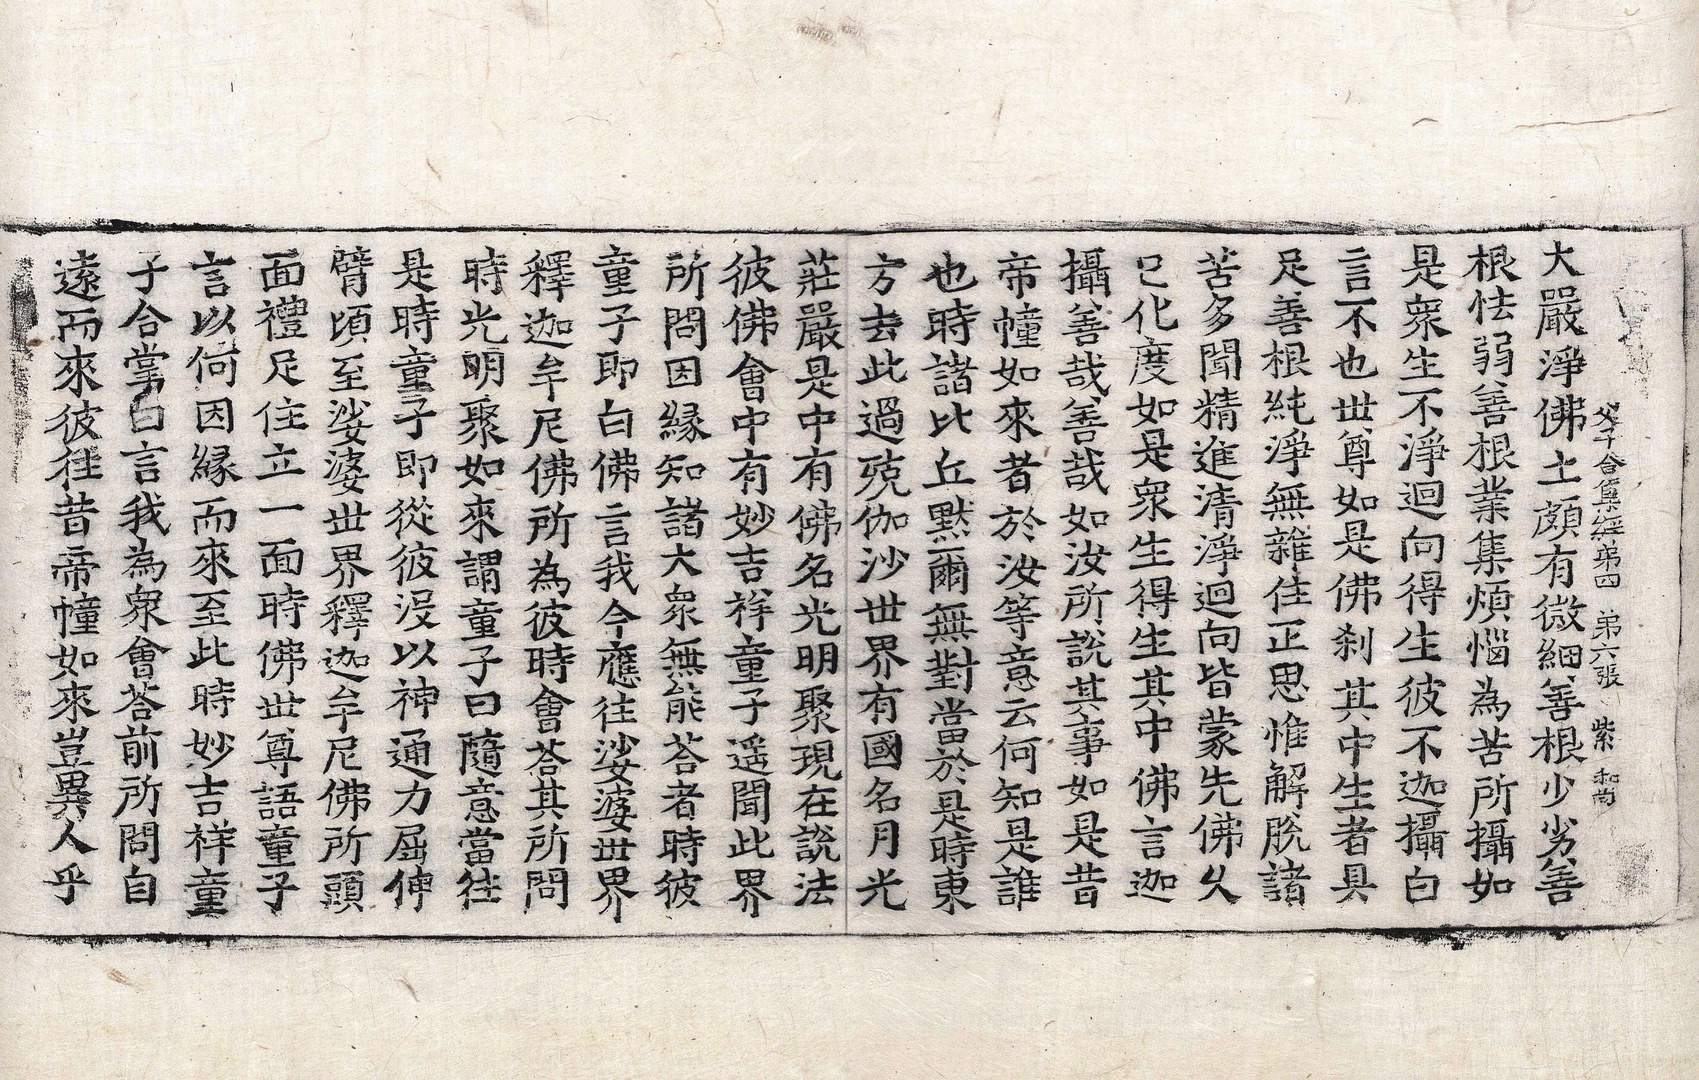 父子合集經第四　第六張　紫　和尚
大嚴淨佛土頗有微細善根少劣善
根怯弱善根業集煩惱為苦所攝如
是衆生不淨迴向得生彼不迦攝白
言不也世尊如是佛刹其中生者具
足善根純淨無雜住正思惟解脫諸
苦多聞精進清淨迴向皆蒙先佛久
已化度如是衆生得生其中佛言迦
攝善哉善哉如汝所說其事如是昔
帝幢如來者於汝等意云何知是誰
也時諸比丘黙爾無對當於是時東
方去此過殑伽沙世界有國名月光
莊嚴是中有佛名光明聚現在說法
彼佛會中有妙吉祥童子遥聞此界
所問因緣知諸大衆無能荅者時彼
童子即白佛言我今應往娑婆世界
釋迦牟尼佛所為彼時會荅其所問
時光明聚如來謂童子曰隨意當往
是時童子即從彼沒以神通力屈伸
臂頃至娑婆世界釋迦牟尼佛所頭
面禮足住立一面時佛世尊語童子
言以何因緣而來至此時妙吉祥童
子合掌白言我為衆會荅前所問自
遠而來彼往昔帝幢如來豈異人乎